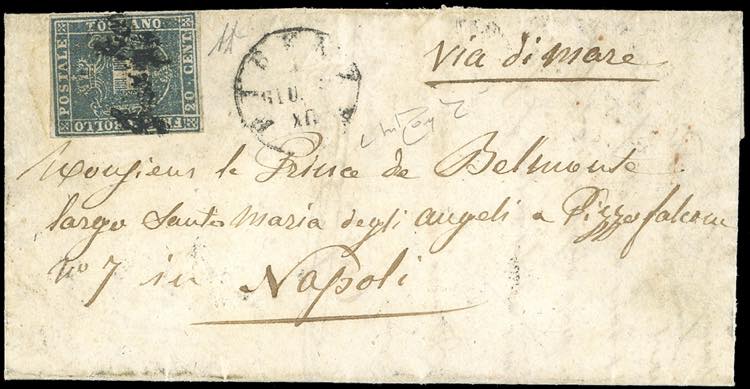 TOSCANO
POSTALE
20 CENT.
BOLLO
GIU.
via di mare
Monsieur le Prince de Belmonte
largo Santo Maria degli angeli a Pizzofalcone
No 7 in
Napoli